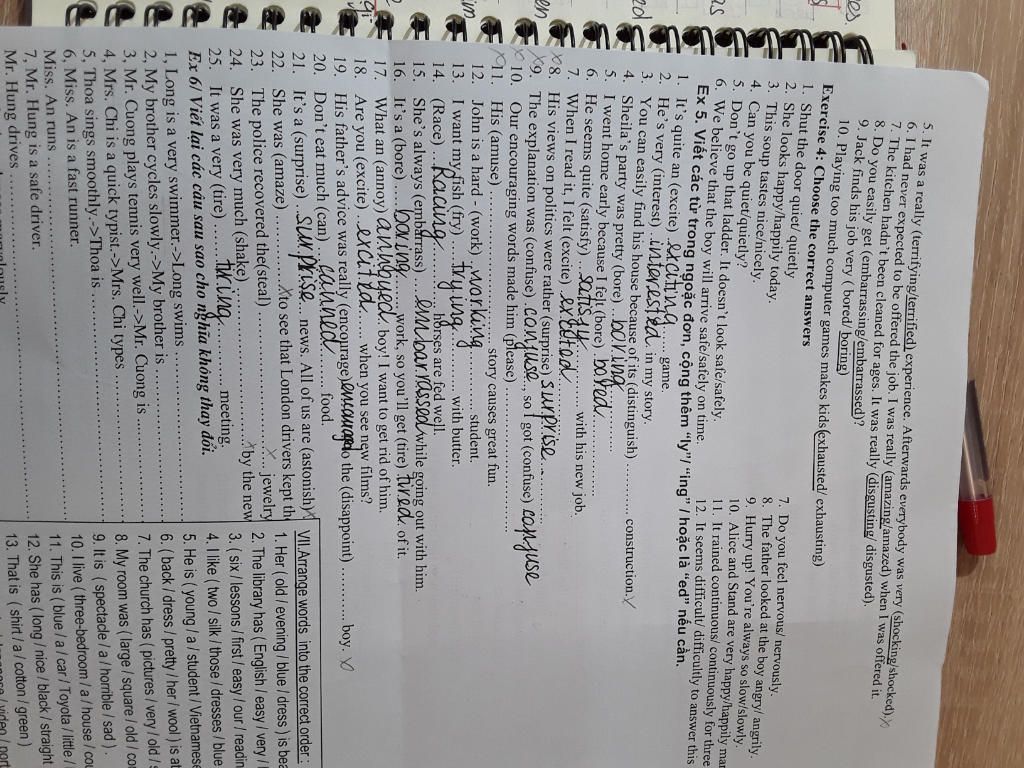 5. It was a really (terrifying/terrified) experience. Afterwards everybody was very (shocking/shocked)
6. I had never expected to be offered the job. I was really (amazing/amazed) when I was offered it.
7. The kitchen hadn't been cleaned for ages. It was really (disgusting/ disgusted).
8. Do you easily get (embarrassing/embarrassed)?
9. Jack finds his job very ( bored/ boring)
10. Playing too much computer games makes kids (exhausted/ exhausting)
Exercise 4: Choose the correct answers
1. Shut the door quiet/ quietly
2. She looks happy/happily today.
3. This soup tastes nice/nicely.
4. Can you be quiet/quietly?
5. Don't go up that ladder. It doesn't look safe/safely.
6. We believe that the boy will arrive safe/safely on time.
7. Do you feel nervous/ nervously.
8. The father looked at the boy angry/ angrily.
9. Hurry up! You're always so slow/slowly.
10. Alice and Stand are very happy/happily mar
11. It rained continuous/ continuously for three
12. It seems difficult/ difficultly to answer this
Ex 5. Viết các từ trong ngoặc đơn, cộng thêm "ly"/ "ing" / hoặc là "ed" nếu cần.
1. It's quite an (excite) exciting game.
2. He's very (interest) interested in my story.
3. You can easily find his house because of its (distinguish) ......... construction.
4. Sheila's party was pretty (bore) boring
5. I went home early because I felt (bore) bored
6. He seems quite (satisfy) satisfy with his new job.
7. When I read it, I felt (excite) excited
8. His views on politics were rather (surprise) surprise
9. The explanation was (confuse) confuse, so I got (confuse) confuse
10. Our encouraging words made him (please)
11. His (amuse) ......... story causes great fun.
12. John is a hard - (work) working student.
13. I want my fish (fry) frying with butter.
14. (Race) Racing horses are fed well.
15. She's always (embarrass) embarrassed while going out with him.
16. It's a (bore) boring work, so you'll get (tire) tired of it.
17. What an (annoy) annoyed boy! I want to get rid of him.
18. Are you (excite) excited when you see new films?
19. His father's advice was really (encourage) to the (disappoint) ......... boy.
20. Don't eat much (can) canned food.
21 It's a (surprise) surprise news. All of us are (astonish)
22. She was (amaze) ......... to see that London drivers kept th
23. The police recovered the(steal) ......... jewelry
24. She was very much (shake) ......... by the new
25. It was a very (tire) tiring meeting.
Ex 6/ Viết lại các câu sau sao cho nghĩa không thay đổi.
1, Long is a very swimmer.->Long swims .........
2, My brother cycles slowly ->My brother is .........
3, Mr. Cuong plays tennis very well.->Mr. Cuong is .........
4, Mrs. Chi is a quick typist.->Mrs. Chi types .........
5, Thoa sings smoothly->Thoa is .........
6, Miss. An is a fast runner.
Miss. An runs .........
7, Mr. Hung is a safe driver.
Mr. Hung drives .........
VII.Arrange words into the correct order:
1. Her ( old / evening / blue / dress ) is bea
2. The library has ( English / easy / very /
3. ( six / lessons / first / easy / our / readin
4. I like ( two / silk / those / dresses / blue
5. He is ( young / a / student / Vietnamese
6. ( back / dress / pretty / her / wool ) is at
7. The church has ( pictures / very / old /
8. My room was ( large / square / old / co
9. It is ( spectacle / a / horrible / sad ) .
10. I live ( three-bedroom / a / house / cou
11. This is ( blue / a / car / Toyota / little /
12. She has ( long / nice / black / straight
13. That is ( shirt / a / cotton / green )